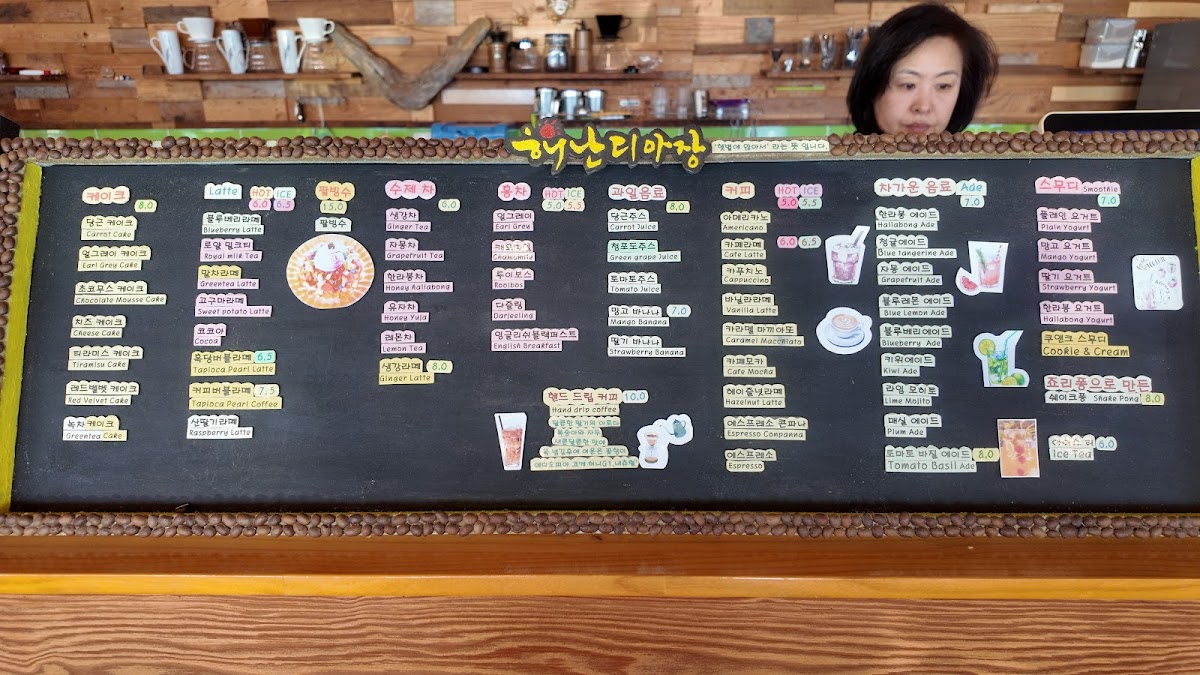 해난디아장
'햇볕에 앉아서' 라는 뜻 입니다.
케이크 8.0
당근 케이크
Carrot Cake
얼그레이 케이크
Earl Grey Cake
초코무스 케이크
Chocolate Mousse Cake
치즈 케이크
Cheese Cake
티라미스 케이크
Tiramisu Cake
레드벨벳 케이크
Red Velvet Cake
녹차케이크
Greentea Cake
Latte HOT ICE
6.0 6.5
블루베리라떼
Blueberry Latte
로얄 밀크티
Royal milk Tea
말차라떼
Greentea Latte
고구마라떼
Sweet potato Latte
코코아
Cocoa
흑당버블라떼 6.5
Tapioca Pearl Latte
커피버블라떼 7.5
Tapioca Pearl Coffee
산딸기라떼
Raspberry Latte
팥빙수
15.0
팥빙수
수제 차 6.0
생강차
Ginger Tea
자몽차
Grapefruit Tea
한라봉차
Honey Hallabong
유자차
Honey Yuja
레몬차
Lemon Tea
생강라떼 8.0
Ginger Latte
홍차 HOT ICE
5.0 5.5
얼그레이
Earl Grey
Chamomile
루이보스
Rooibos
다즐링
Darjeeling
잉글리쉬블랙퍼스트
English Breakfast
과일음료 8.0
당근주스
Carrot Juice
청포도주스
Green grape Juice
토마토주스
Tomato Juice
망고 바나나 7.0
Mango Banana
딸기 바나나
Strawberry Banana
핸드 드립 커피 10.0
Hand drip coffee
달콤한 딸기의 아로마
복숭아와 자두
커피 HOT ICE
5.0 5.5
아메리카노
Americano
카페라떼 6.0 6.5
Cafe Latte
카푸치노
Cappuccino
바닐라라떼
Vanilla Latte
카라멜 마끼아또
Caramel Macchiato
카페모카
Cafe Mocha
헤이즐넛라떼
Hazelnut Latte
에스프레소 콘파나
Espresso Conpanna
에스프레소
Espresso
차가운 음료 Ade
7.0
한라봉 에이드
Hallabong Ade
청귤에이드
Blue tangerine Ade
자몽 에이드
Grapefruit Ade
블루레몬 에이드
Blue Lemon Ade
블루베리에이드
Blueberry Ade
키위에이드
Kiwi Ade
라임 모히토
Lime Mojito
매실 에이드
Plum Ade
토마토 바질 에이드 8.0
Tomato Basil Ade
스무디 Smoothie
7.0
플레인 요거트
Plain Yogurt
망고 요거트
Mango Yogurt
딸기 요거트
Strawberry Yogurt
한라봉 요거트
Hallabong Yogurt
쿠앤크 스무디
Cookie & Cream
죠리퐁으로 만든
쉐이크퐁 Shake Pong 8.0
아이스티 6.0
Ice Tea